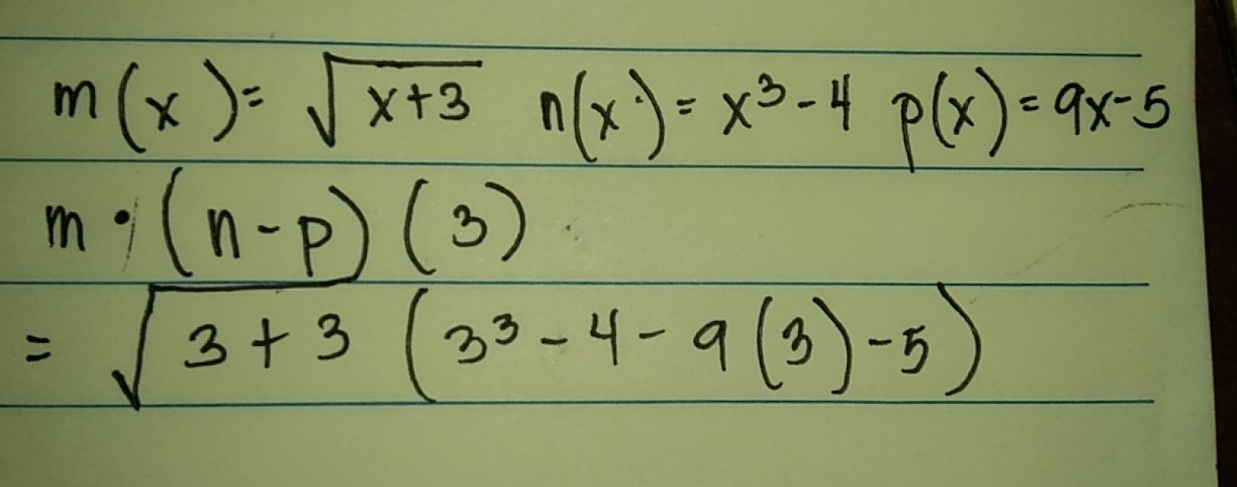 m(x)= √x+3 n(x)= x³-4 p(x)=9x-5
m • (n-p) (3)
= √3+3 (3³-4-9(3)-5)